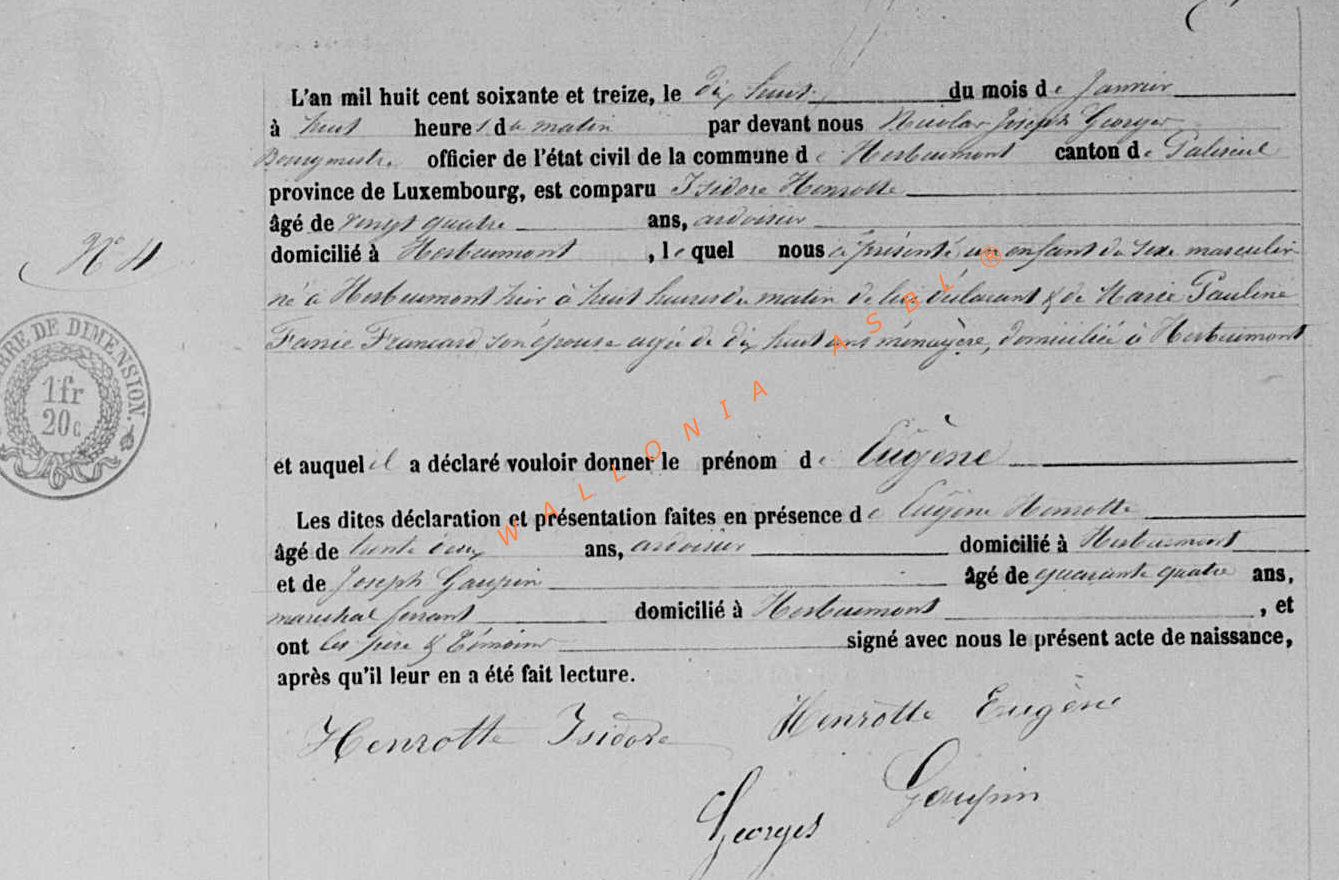 L'an mil huit cent soixante et treize, le dix huit du mois de Janvier
à huit heures du matin par devant nous Nicolas Joseph Georges
Bourgmestre officier de l'état civil de la commune de Herbeumont canton de Paliseul
province de Luxembourg, est comparu Isidore Henrotte
âgé de vingt quatre ans, ardoisier
domicilié à Herbeumont, lequel nous a présenté un enfant du sexe masculin
né à Herbeumont hier à huit heures du matin de lui déclarant & de Marie Pauline
Fanie Francard son épouse agée de dix huit ans ménagère, domiciliée à Herbeumont
N° 4
TIMBRE DE DIMENSION.
1fr
20c
et auquel il a déclaré vouloir donner le prénom de Eugène
Les dites déclaration et présentation faites en présence de Eugène Henrotte
âgé de trente deux ans, ardoisier domicilié à Herbeumont
et de Joseph Goupin âgé de quarante quatre ans,
marechal ferrant domicilié à Herbeumont, et
ont les père & témoins signé avec nous le présent acte de naissance,
après qu'il leur en a été fait lecture.
Henrotte Isidore Henrotte Eugène
Goupin
Georges
WALLONIA ASBL ®